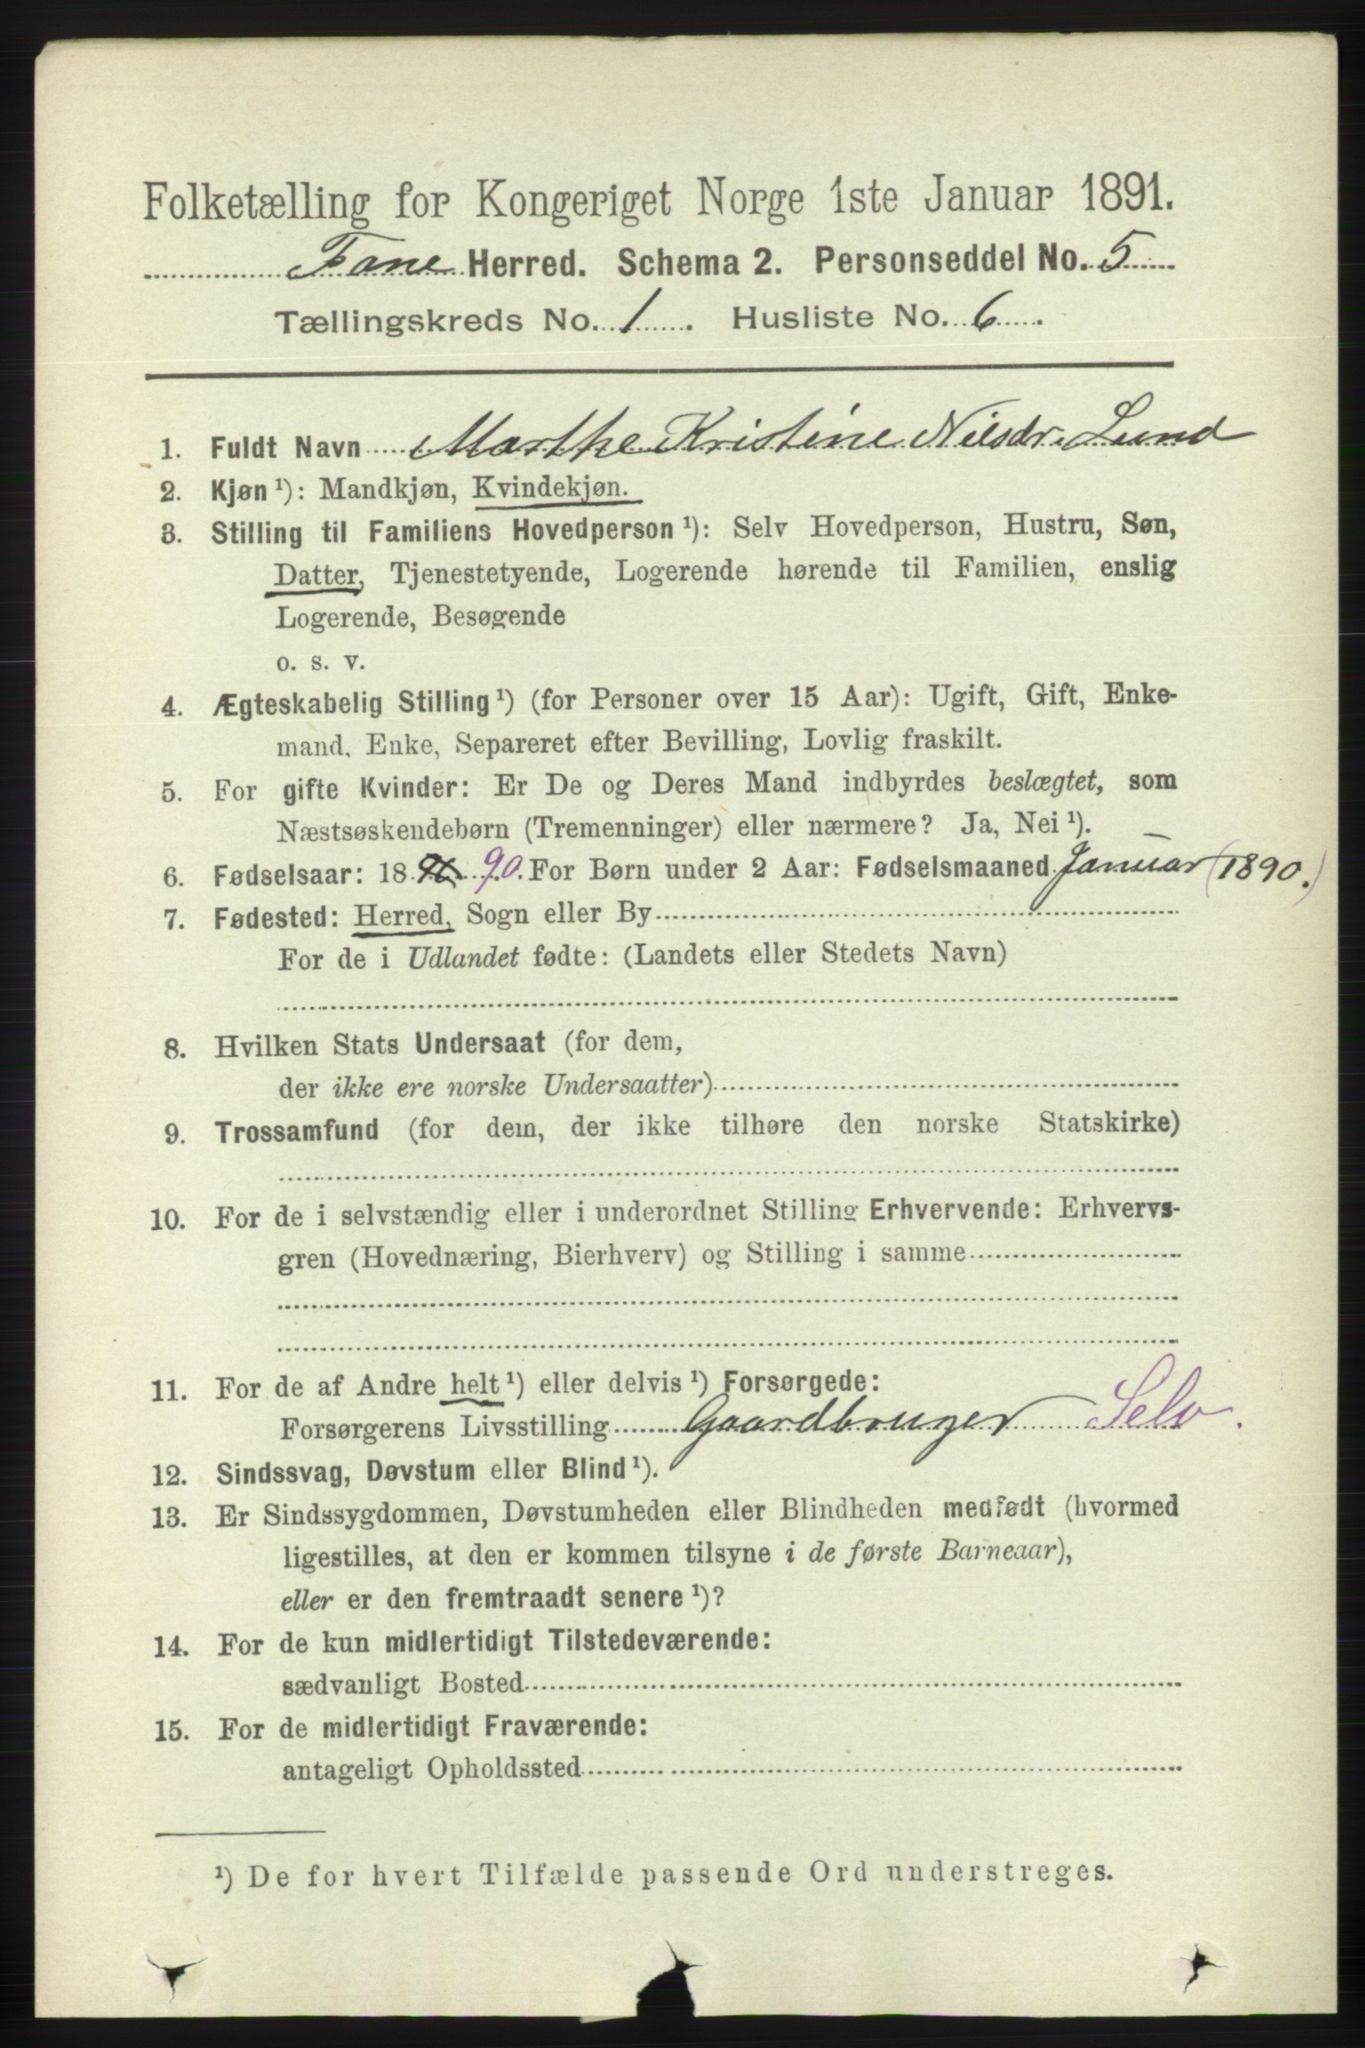 Folketælling for Kongeriget Norge 1ste Januar 1891.
Fane Herred. Schema 2. Personseddel No. 5
Tællingskreds No. 1. Husliste No. 6.
1. Fuldt Navn Marthe Kristine Nilsdr. Lund
2. Kjøn ¹): Mandkjøn, Kvindekjøn.
3. Stilling til Familiens Hovedperson ¹): Selv Hovedperson, Hustru, Søn,
Datter, Tjenestetyende, Logerende hørende til Familien, enslig
Logerende, Besøgende
o. s. v.
4. Ægteskabelig Stilling ¹) (for Personer over 15 Aar): Ugift, Gift, Enke-
mand, Enke, Separeret efter Bevilling, Lovlig fraskilt.
5. For gifte Kvinder: Er De og Deres Mand indbyrdes beslægtet, som
Næstsøskendebørn (Tremenninger) eller nærmere? Ja, Nei ¹).
6. Fødselsaar: 18 90. For Børn under 2 Aar: Fødselsmaaned Januar (1890.)
7. Fødested: Herred, Sogn eller By
For de i Udlandet fødte: (Landets eller Stedets Navn)
8. Hvilken Stats Undersaat (for dem,
der ikke ere norske Undersaatter)
9. Trossamfund (for dem, der ikke tilhøre den norske Statskirke)
10. For de i selvstændig eller i underordnet Stilling Erhvervende: Erhvervs-
gren (Hovednæring, Bierhverv) og Stilling i samme
11. For de af Andre helt ¹) eller delvis ¹) Forsørgede:
Forsørgerens Livsstilling Gaardbruger Selv.
12. Sindssvag, Døvstum eller Blind ¹).
13. Er Sindssygdommen, Døvstumheden eller Blindheden medfødt (hvormed
ligestilles, at den er kommen tilsyne i de første Barneaar),
eller er den fremtraadt senere ¹)?
14. For de kun midlertidigt Tilstedeværende:
sædvanligt Bosted
15. For de midlertidigt Fraværende:
antageligt Opholdssted
¹) De for hvert Tilfælde passende Ord understreges.